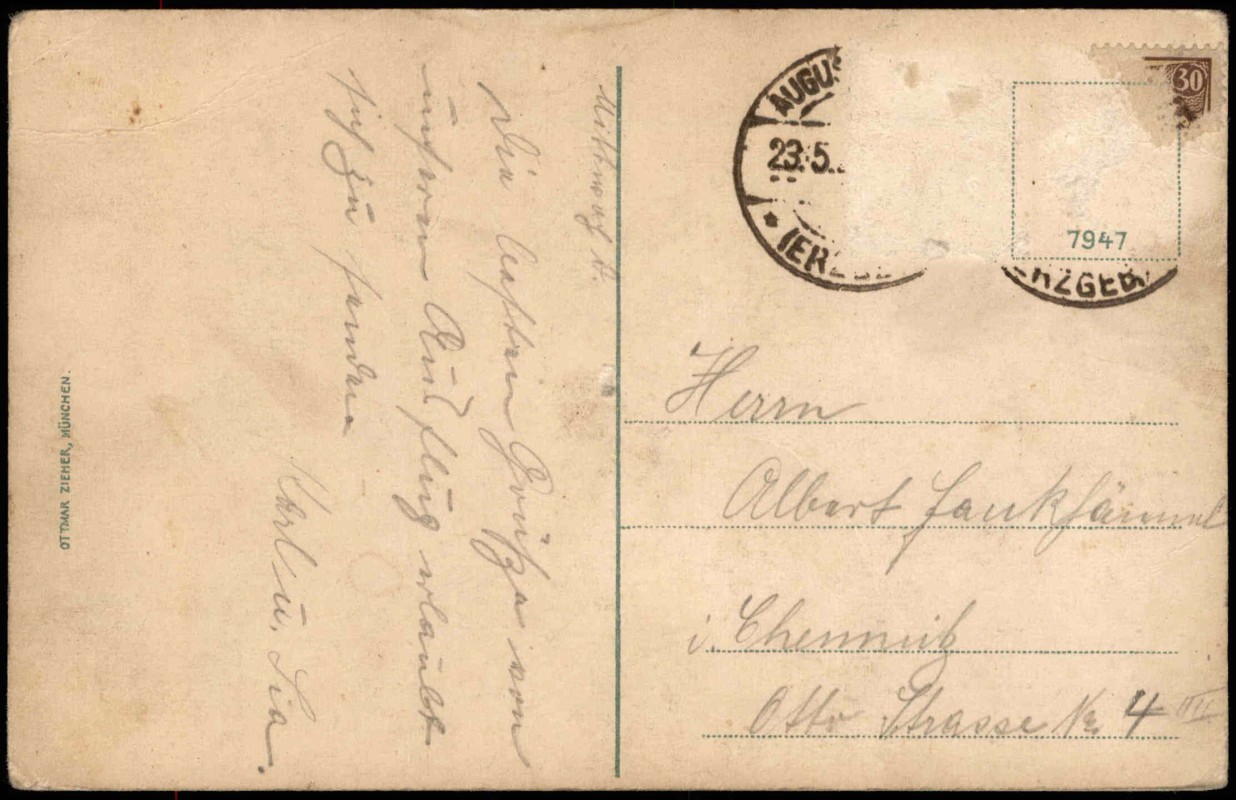 Mittwoch d.
Die besten Grüße von
unserem Ausflug erlaubt
sich zu senden
Karl u. Lia.
OTTMAR ZIEHER, MÜNCHEN.
AUGUS
23.5.
(ERZGE
ERZGEB.
30
7947
Herrn
Albert
i. Chemnitz
Otto Strasse No 4 III